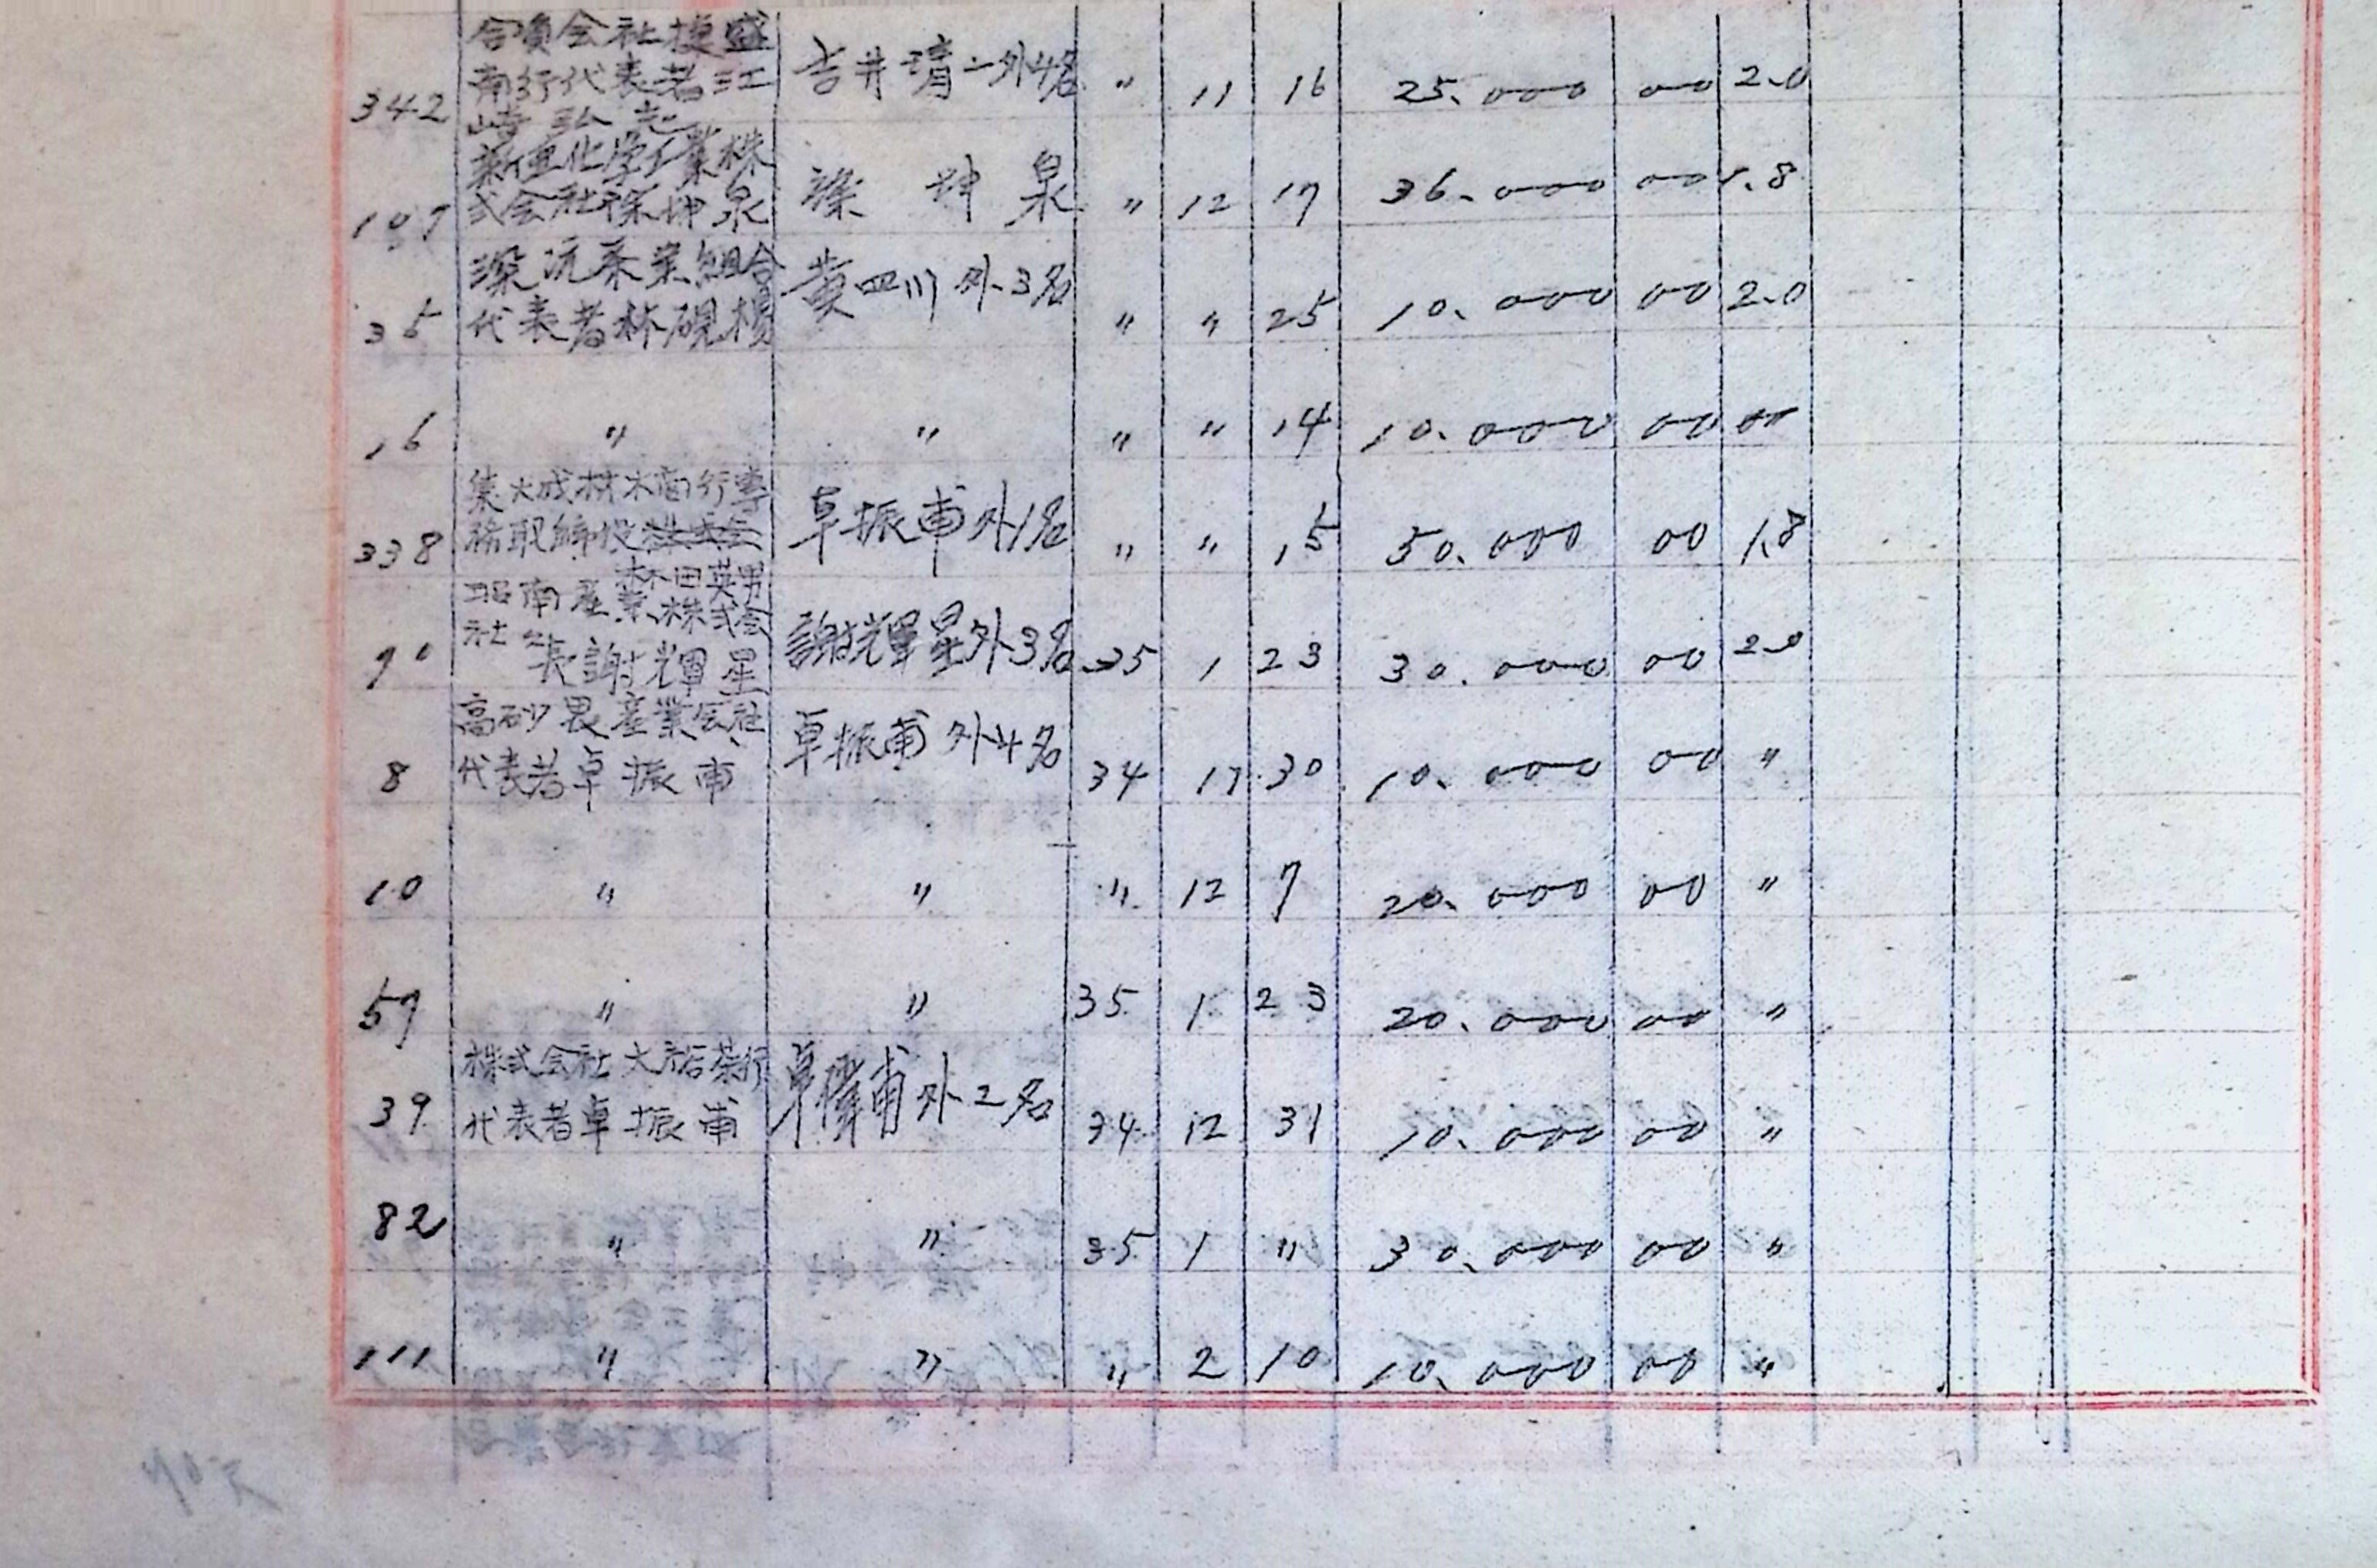 合資会社捷盛
342 南行代表者江 吉井清二外4名 〃 11 16 25.000 00 2.0
崎弘志
新宜化学工業株
107 式会社徐坤泉 徐坤泉 〃 12 17 36.000 00 1.8
深坑茶業組合
35 代表者林硯楊 黄四川外3名 〃 〃 25 10.000 00 2.0
16 〃 〃 〃 〃 14 10.000 00 〃
集大成材木商行専
338 務取締役 卓振甫外1名 〃 〃 15 50.000 00 1.8
林田英男
昭南産業株式会
社々長謝輝星 謝輝星外3名 35 1 23 30.000 00 2.0
高砂農産業会社
8 代表者卓振甫 卓振甫外4名 34 30 10.000 00 〃
10 〃 〃 〃 12 7 20.000 00 〃
57 〃 〃 35 1 23 20.000 00 〃
株式会社大裕茶行
39 代表者卓振甫 卓振甫外2名 34 12 31 10.000 00 〃
82 〃 〃 35 1 〃 30.000 00 〃
111 〃 〃 〃 2 10 10.000 00 〃